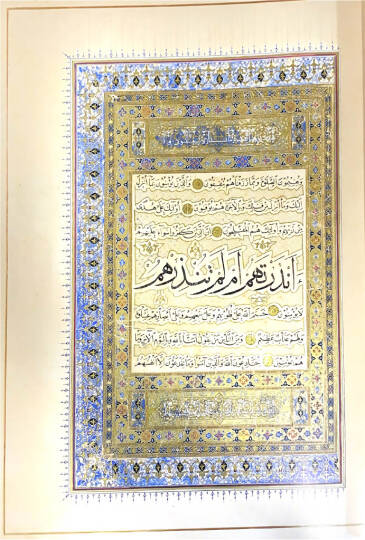 وَيُقِيمُونَ الصَّلٰوةَ وَمِمَّا رَزَقْنَاهُمْ يُنْفِقُونَ وَالَّذِينَ يُؤْمِنُونَ بِمَا أُنْزِلَ
إِلَيْكَ وَمَا أُنْزِلَ مِنْ قَبْلِكَ وَبِالْآخِرَةِ هُمْ يُوقِنُونَ أُولٰئِكَ عَلَىٰ هُدًى
مِنْ رَبِّهِمْ وَأُولٰئِكَ هُمُ الْمُفْلِحُونَ إِنَّ الَّذِينَ كَفَرُوا سَوَاءٌ عَلَيْهِمْ
ءَأَنْذَرْتَهُمْ أَمْ لَمْ تُنْذِرْهُمْ
لَا يُؤْمِنُونَ خَتَمَ اللّٰهُ عَلَىٰ قُلُوبِهِمْ وَعَلَىٰ سَمْعِهِمْ وَعَلَىٰ أَبْصَارِهِمْ غِشَاوَةٌ
وَلَهُمْ عَذَابٌ عَظِيمٌ وَمِنَ النَّاسِ مَنْ يَقُولُ آمَنَّا بِاللّٰهِ وَبِالْيَوْمِ الْآخِرِ وَمَا
هُمْ بِمُؤْمِنِينَ يُخَادِعُونَ اللّٰهَ وَالَّذِينَ آمَنُوا وَمَا يَخْدَعُونَ إِلَّا أَنْفُسَهُمْ